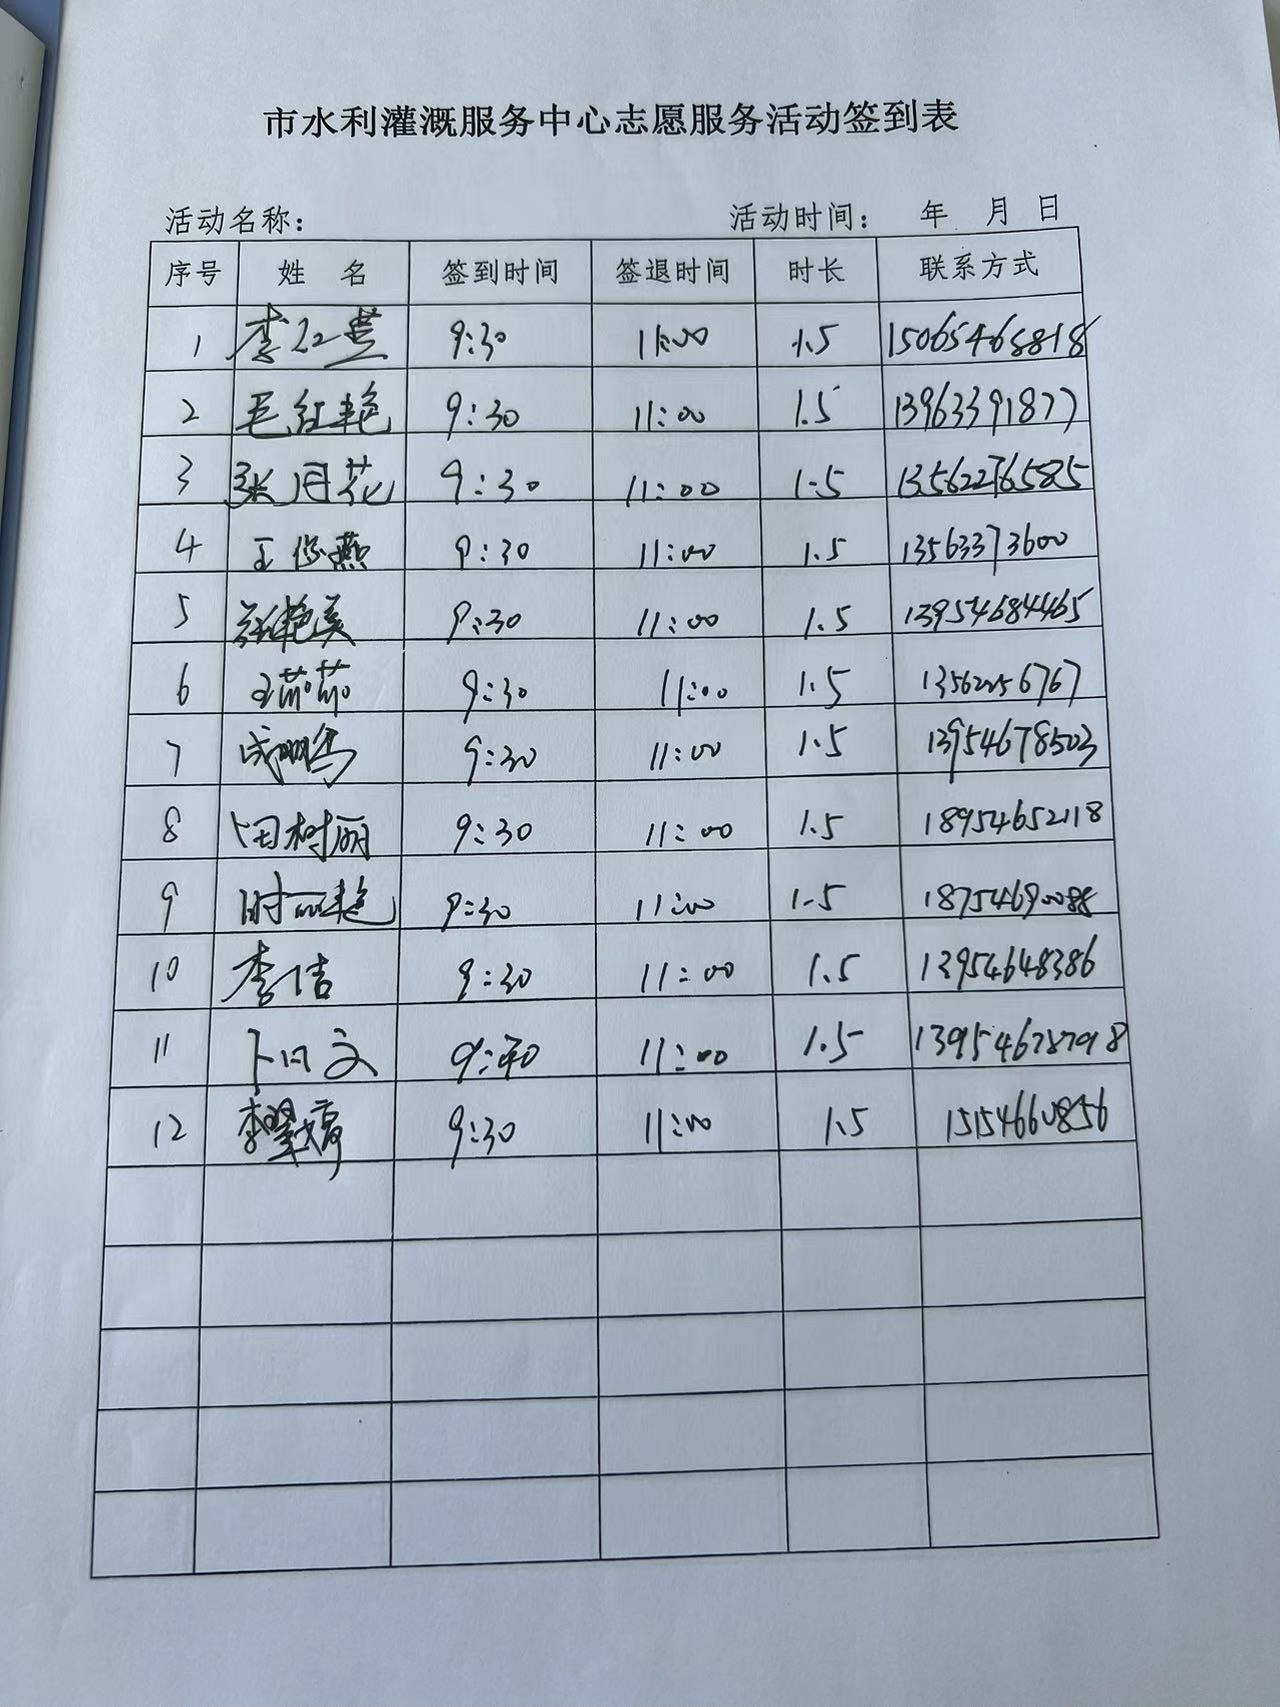 市水利灌溉服务中心志愿服务活动签到表
活动名称： 活动时间： 年 月 日
序号 姓 名 签到时间 签退时间 时长 联系方式
1 李红 9:30 11:00 1.5 15065465818
2 毛红艳 9:30 11:00 1.5 13963391877
3 张月花 9:30 11:00 1.5 13562276585
4 王 燕 9:30 11:00 1.5 13563373600
5 艳美 9:30 11:00 1.5 13954684465
6 王茄茄 9:30 11:00 1.5 13562256767
7 成鹏 9:30 11:00 1.5 13954678503
8 田树丽 9:30 11:00 1.5 18954652118
9 时丽艳 9:30 11:00 1.5 18754690088
10 李洁 9:30 11:00 1.5 13954648386
11 卜文 11:00 1.5
12 李翠 9:30 11:00 1.5 15154660856